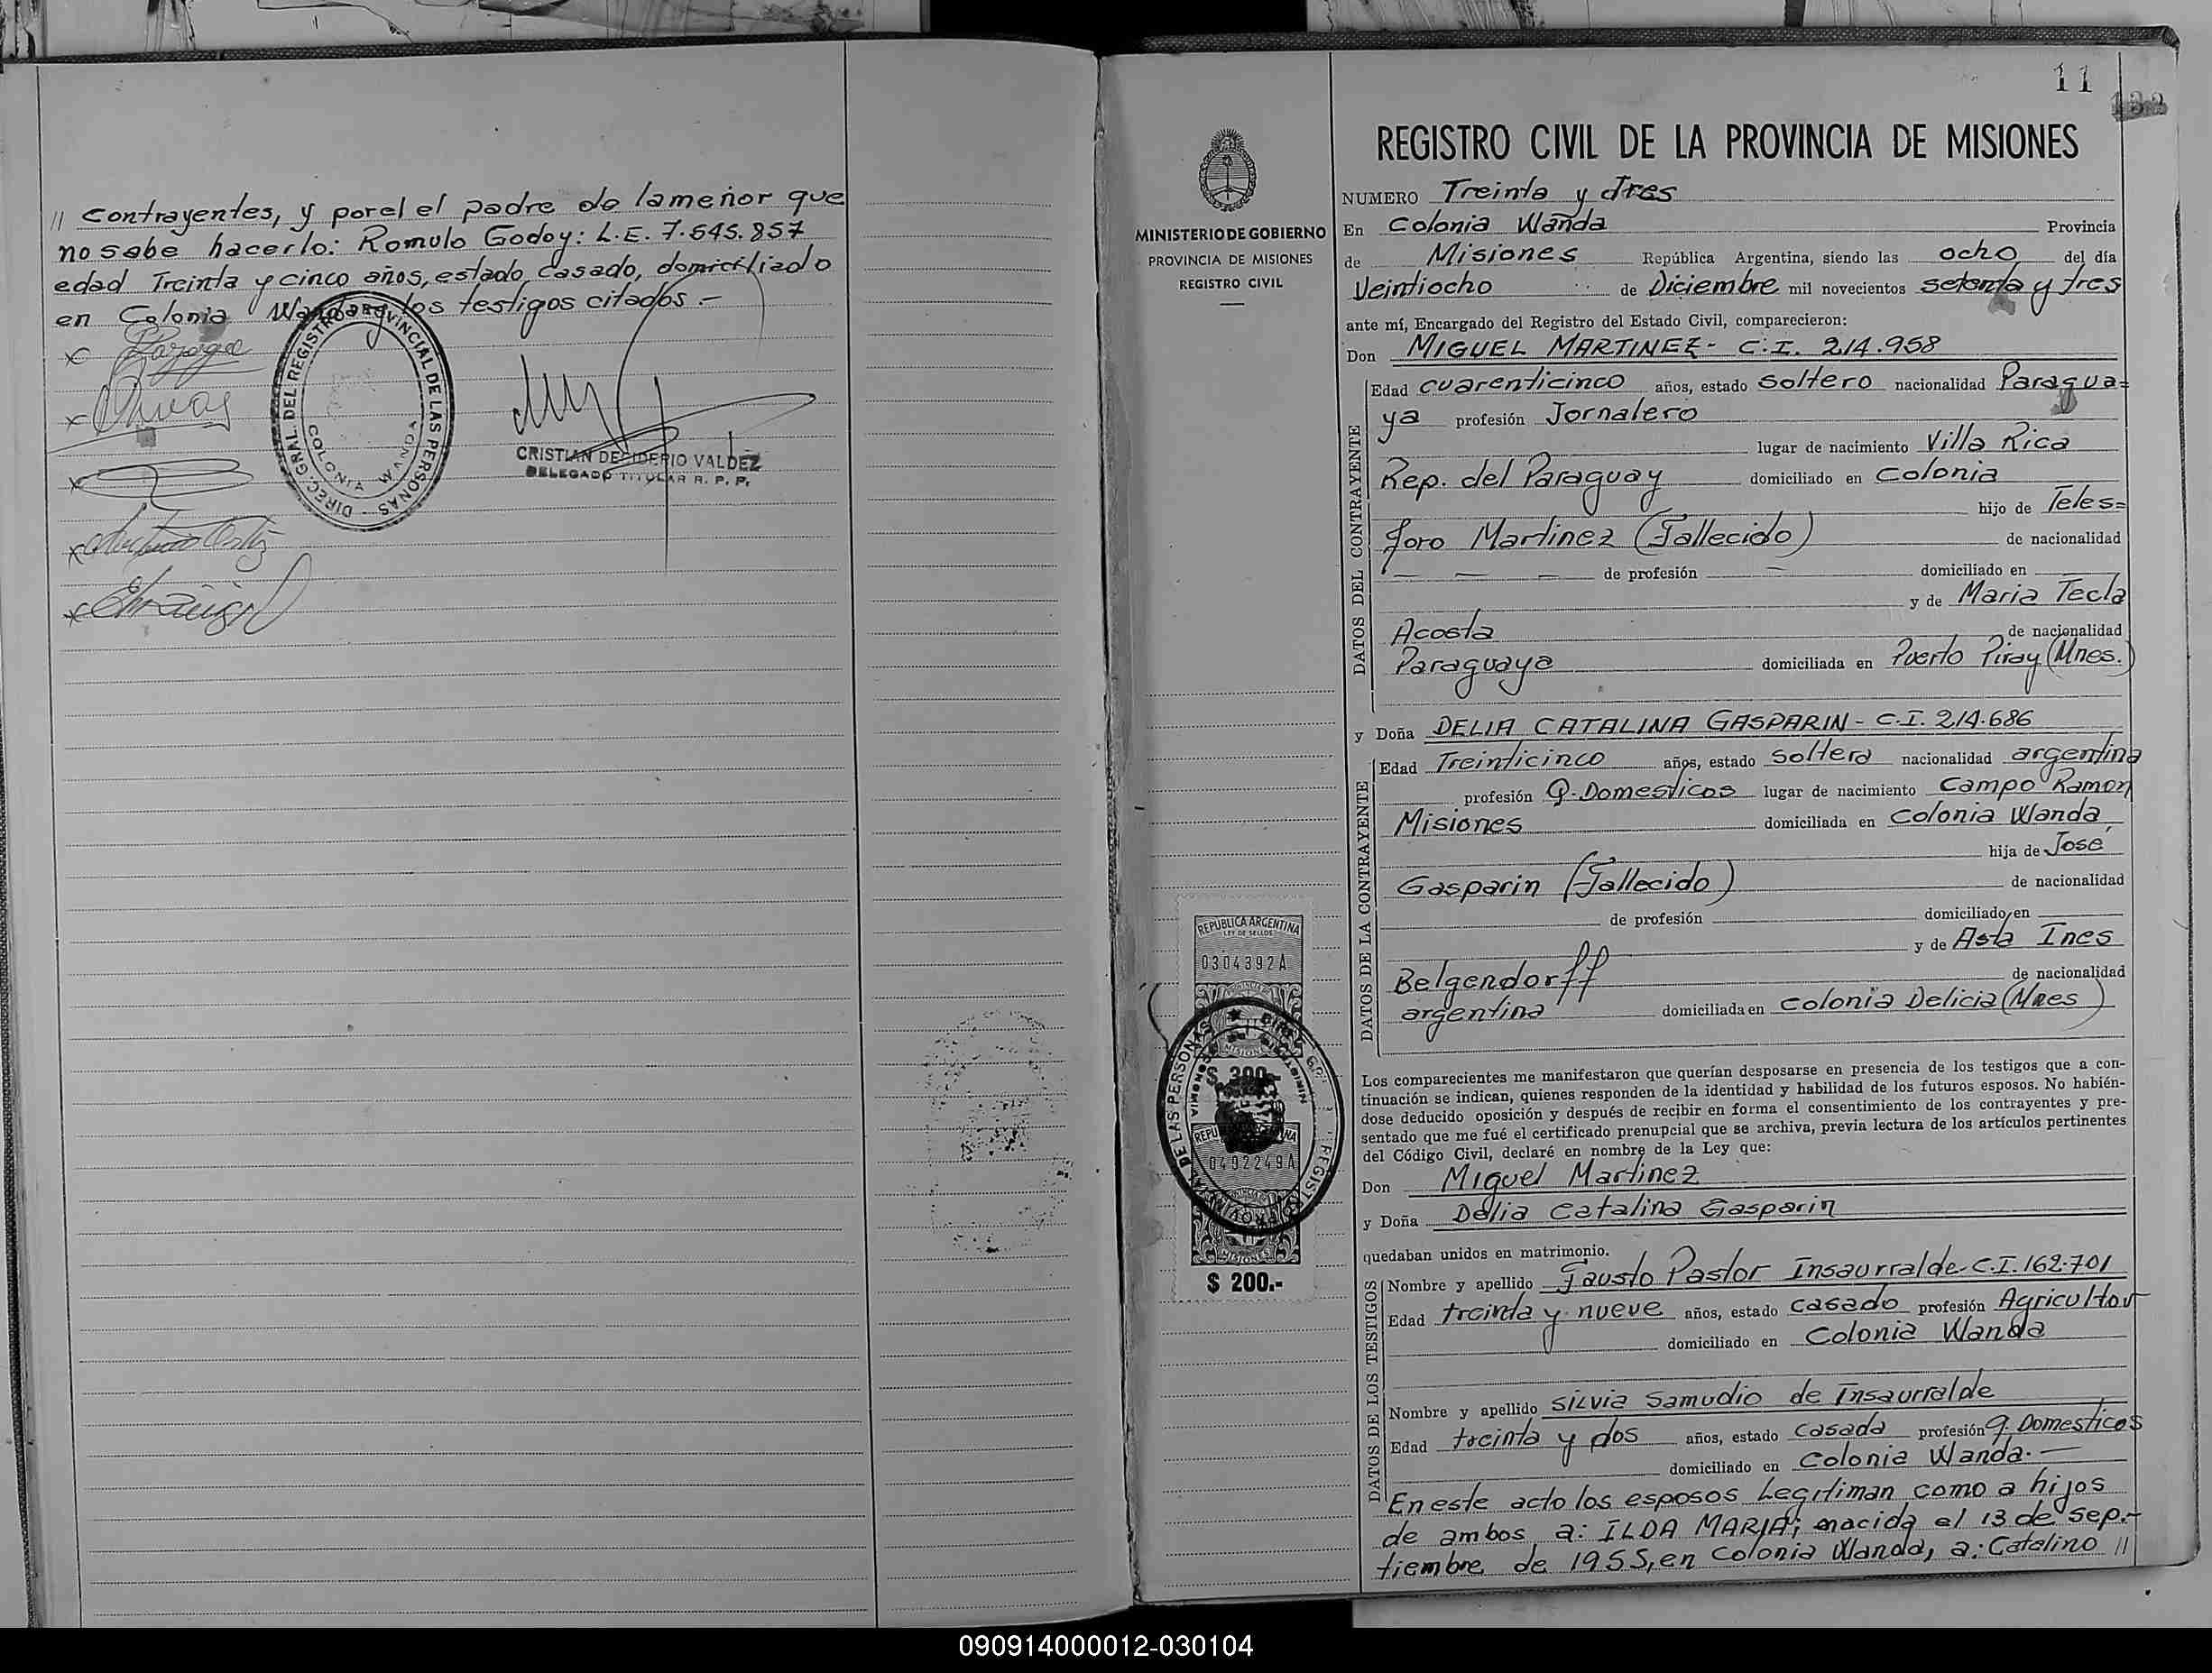 // Contrayentes, y porel el padre de lameñor que
no sabe hacerlo: Romulo Godoy: L.E. 7.545.857
edad Treinta y cinco años, estado casado, domiciliado
en Colonia Wanda y los testigos citados.-
DIREC. GRAL. DEL REGISTRO PROVINCIAL DE LAS PERSONAS
COLONIA WANDA
CRISTIAN DESIDERIO VALDEZ
DELEGADO TITULAR R. P. P.
11
MINISTERIO DE GOBIERNO
PROVINCIA DE MISIONES
REGISTRO CIVIL
REPUBLICA ARGENTINA
LEY DE SELLOS
0304392A
MISIONES
$ 300.-
0402249A
MISIONES
$ 200.-
REGISTRO CIVIL DE LA PROVINCIA DE MISIONES
NUMERO Treinta y tres
En Colonia Wanda Provincia
de Misiones República Argentina, siendo las ocho del día
Veintiocho de Diciembre mil novecientos setenta y tres
ante mí, Encargado del Registro del Estado Civil, comparecieron:
Don MIGUEL MARTINEZ- C.I. 214.958
DATOS DEL CONTRAYENTE
Edad cuarenticinco años, estado soltero nacionalidad Paragua=
ya profesión Jornalero
lugar de nacimiento Villa Rica
Rep. del Paraguay domiciliado en Colonia
hijo de Teles=
foro Martinez (Fallecido) de nacionalidad
— — — de profesión — domiciliado en
y de Maria Tecla
Acosta de nacionalidad
Paraguaya domiciliada en Puerto Piray (Mnes.)
y Doña DELIA CATALINA GASPARIN- C.I. 214.686
DATOS DE LA CONTRAYENTE
Edad Treinticinco años, estado soltera nacionalidad argentina
profesión Q. Domesticos lugar de nacimiento Campo Ramon
Misiones domiciliada en Colonia Wanda,
hija de José
Gasparin (Fallecido) de nacionalidad
de profesión domiciliado en
y de Asta Ines
Belgendorff de nacionalidad
argentina domiciliada en Colonia Delicia (Mnes)
Los comparecientes me manifestaron que querían desposarse en presencia de los testigos que a con-
tinuación se indican, quienes responden de la identidad y habilidad de los futuros esposos. No habién-
dose deducido oposición y después de recibir en forma el consentimiento de los contrayentes y pre-
sentado que me fué el certificado prenupcial que se archiva, previa lectura de los artículos pertinentes
del Código Civil, declaré en nombre de la Ley que:
Don Miguel Martinez
y Doña Delia Catalina Gasparin
quedaban unidos en matrimonio.
DATOS DE LOS TESTIGOS
Nombre y apellido Fausto Pastor Insaurralde-C.I.162.701
Edad treinta y nueve años, estado casado profesión Agricultor
domiciliado en Colonia Wanda
Nombre y apellido Silvia Samudio de Insaurralde
Edad treinta y dos años, estado casada profesión q. Domesticos
domiciliado en Colonia Wanda.—
En este acto los esposos Legitiman como a hijos
de ambos a: ILDA MARIA; nacida el 13 de sep.-
tiembre de 1955, en Colonia Wanda, a: Catalino //
090914000012-030104